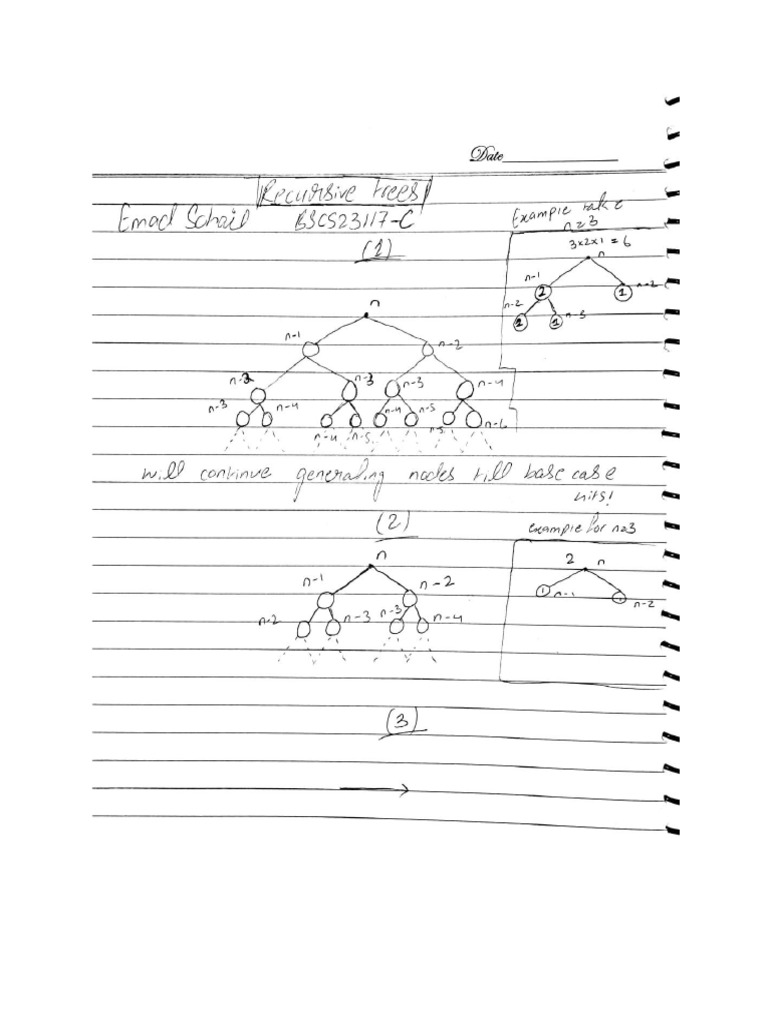 Date
Recursive trees
Emad Sohail BSCS23117-C
Example take
n=3
(1)
3x2x1 = 6
n
n-1
2
1
n-2
n-2
1
1
n-3
n
n-1
n-2
n-2
n-3
n-3
n-4
n-3
n-4
n-4
n-5
n-4
n-5
n-5
n-6
will continue generating nodes till base case
hits!
(2)
example for n=3
n
2
n
n-1
n-2
1
n-1
1
n-2
n-2
n-3
n-3
n-4
(3)